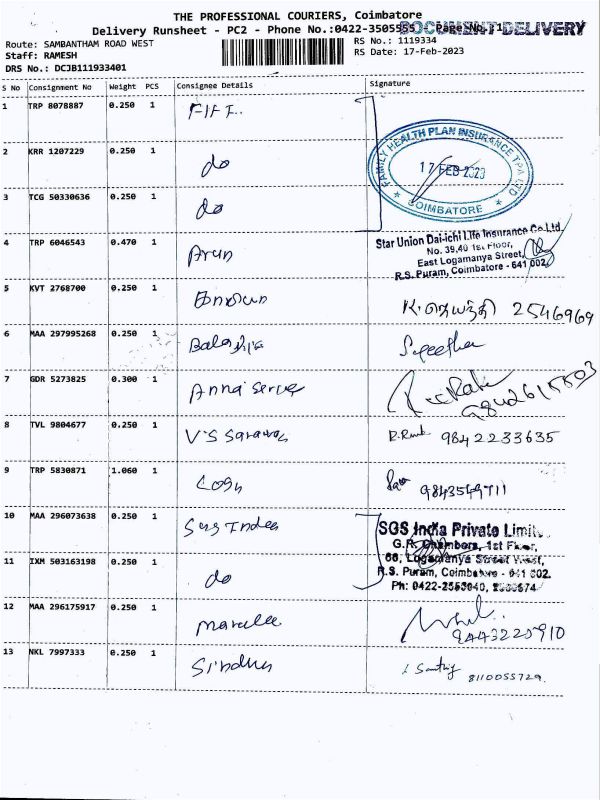 THE PROFESSIONAL COURIERS, Coimbatore
Delivery Runsheet - PC2 - Phone No.:0422-3505955 Page No.:1
DOCUMENT DELIVERY
Route: SAMBANTHAM ROAD WEST
Staff: RAMESH
DRS No.: DCJB111933401
RS No.: 1119334
RS Date: 17-Feb-2023
S No Consignment No Weight PCS Consignee Details Signature
1 TRP 8078887 0.250 1
FAMILY HEALTH PLAN INSURANCE TPA LTD
17 FEB 2023
COIMBATORE
2 KRR 1207229 0.250 1 do
3 TCG 50330636 0.250 1 do
4 TRP 6046543 0.470 1 Arun
Star Union Dai-ichi Life Insurance Co.Ltd.
No. 39,40 1st Floor,
East Logamanya Street,
R.S. Puram, Coimbatore - 641 002.
5 KVT 2768700 0.250 1 2546969
6 MAA 297995268 0.250 1
7 GDR 5273825 0.300 1 Anna
8 TVL 9804677 0.250 1 V S 9842233635
9 TRP 5830871 1.060 1
10 MAA 296073638 0.250 1
SGS India Private Limit
G.R. Chambers, 1st Floor,
66, Logamanya Street West,
R.S. Puram, Coimbatore - 641 002.
Ph: 0422-
11 IXM 503163198 0.250 1 do
12 MAA 296175917 0.250 1 9443225910
13 NKL 7997333 0.250 1 Sindhu 8110055729